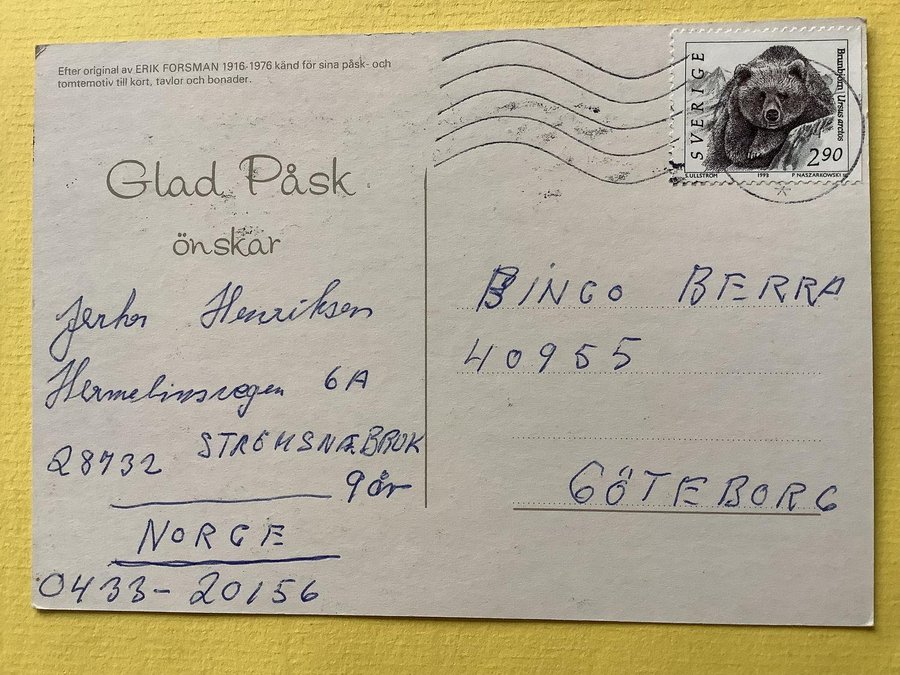 Efter original av ERIK FORSMAN 1916-1976 känd för sina påsk- och
tomtemotiv till kort, tavlor och bonader.
Glad Påsk
önskar
Henriksen
Hermelinsvegen 6A
28732 STRØMSNÆBRUK
9 år
NORGE
0433-20156
SVERIGE
Brunbjörn Ursus arctos
2.90
S.ULLSTRÖM 1993 P. NASZARKOWSKI SC.
BINGO BERRA
40955
GÖTEBORG